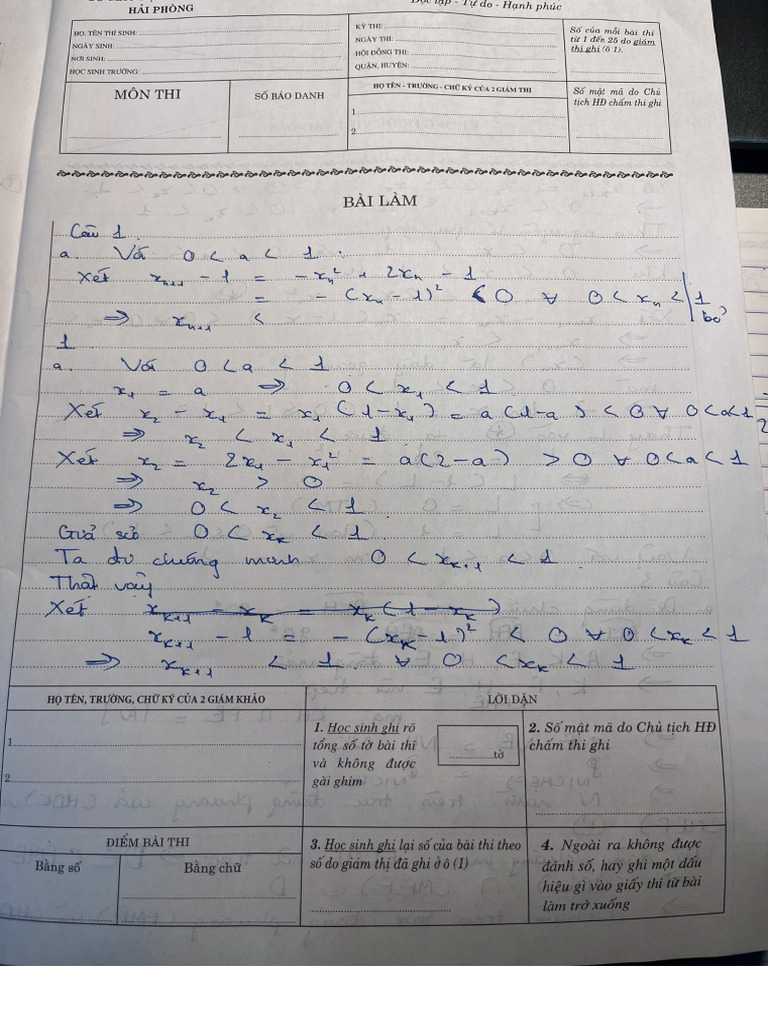 HẢI PHÒNG
Độc lập - Tự do - Hạnh phúc
HỌ, TÊN THÍ SINH:
NGÀY SINH:
NƠI SINH:
HỌC SINH TRƯỜNG:
KỲ THI:
NGÀY THI:
HỘI ĐỒNG THI:
QUẬN, HUYỆN:
Số của mỗi bài thi
từ 1 đến 25 do giám
thị ghi (ô 1).
MÔN THI
SỐ BÁO DANH
HỌ TÊN - TRƯỜNG - CHỮ KÝ CỦA 2 GIÁM THỊ
1
2
Số mật mã do Chủ
tịch HĐ chấm thi ghi
BÀI LÀM
Câu 1.
a. Với 0 < a < 1.
Xét x_{n+1} - 1 = -x_n^2 + 2x_n - 1
= -(x_n - 1)^2 < 0 ∀ 0 < x_n < 1 bỏ
⇒ x_{n+1} <
1
a. Với 0 < a < 1
x_1 = a ⇒ 0 < x_1 < 1
Xét x_2 - x_1 = x_1(1 - x_1) = a(1-a) < 0 ∀ 0<a<1
⇒ x_2 < x_1 < 1
Xét x_2 = 2x_1 - x_1^2 = a(2-a) > 0 ∀ 0<a<1
⇒ x_2 > 0
⇒ 0 < x_2 < 1
Giả sử 0 < x_k < 1
Ta đi chứng minh 0 < x_{k+1} < 1
Thật vậy
Xét x_{k+1} - x_k = x_k(1 - x_k)
x_{k+1} - 1 = -(x_k - 1)^2 < 0 ∀ 0 < x_k < 1
⇒ x_{k+1} < 1 ∀ 0 < x_k < 1
HỌ TÊN, TRƯỜNG, CHỮ KÝ CỦA 2 GIÁM KHẢO
1
2
LỜI DẶN
1. Học sinh ghi rõ
tổng số tờ bài thi
và không được
gài ghim
tờ
2. Số mật mã do Chủ tịch HĐ
chấm thi ghi
ĐIỂM BÀI THI
Bằng số
Bằng chữ
3. Học sinh ghi lại số của bài thi theo
số do giám thị đã ghi ở ô (1)
4. Ngoài ra không được
đánh số, hay ghi một dấu
hiệu gì vào giấy thi từ bài
làm trở xuống